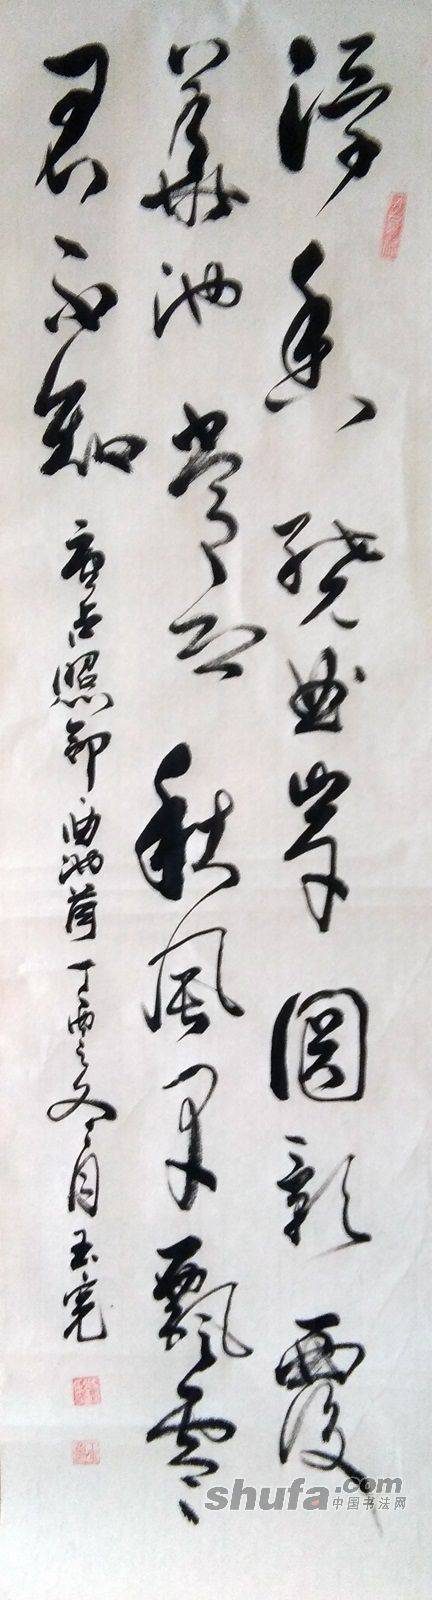 浮香繞曲岸圓影覆
華池常恐秋風早飄零
君不知 唐卢照邻曲池荷 丁酉之 月 玉
shufa.com
中国书法网